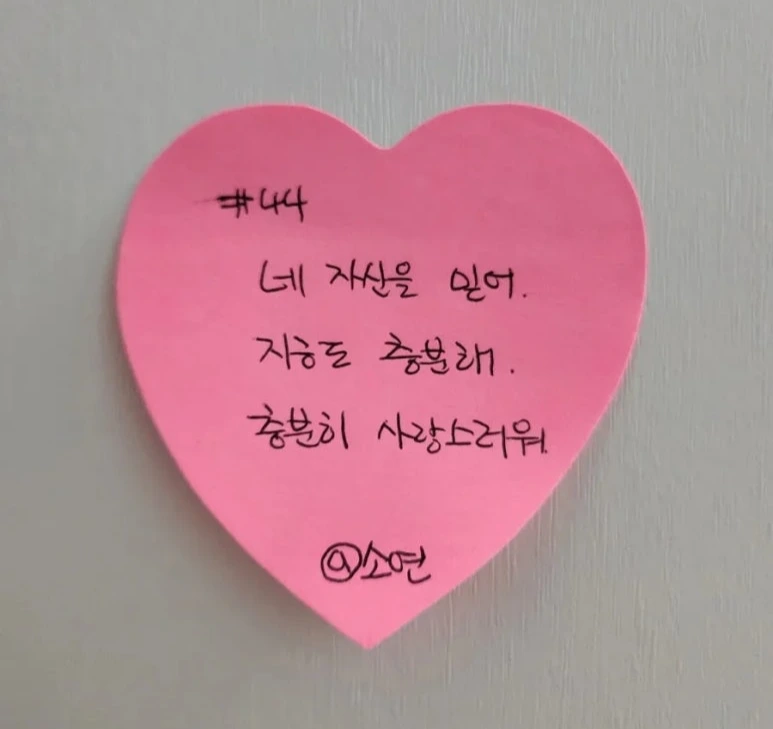 #44
네 자신을 믿어.
지금도 충분해.
충분히 사랑스러워.
@소연